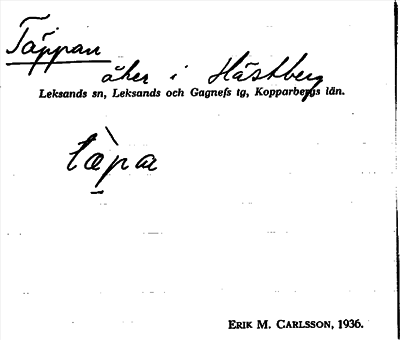 Täppan
åker i Hästberg
Leksands sn, Leksands och Gagnefs tg, Kopparbergs län.
tæ̀pa
ERIK M. CARLSSON, 1936.